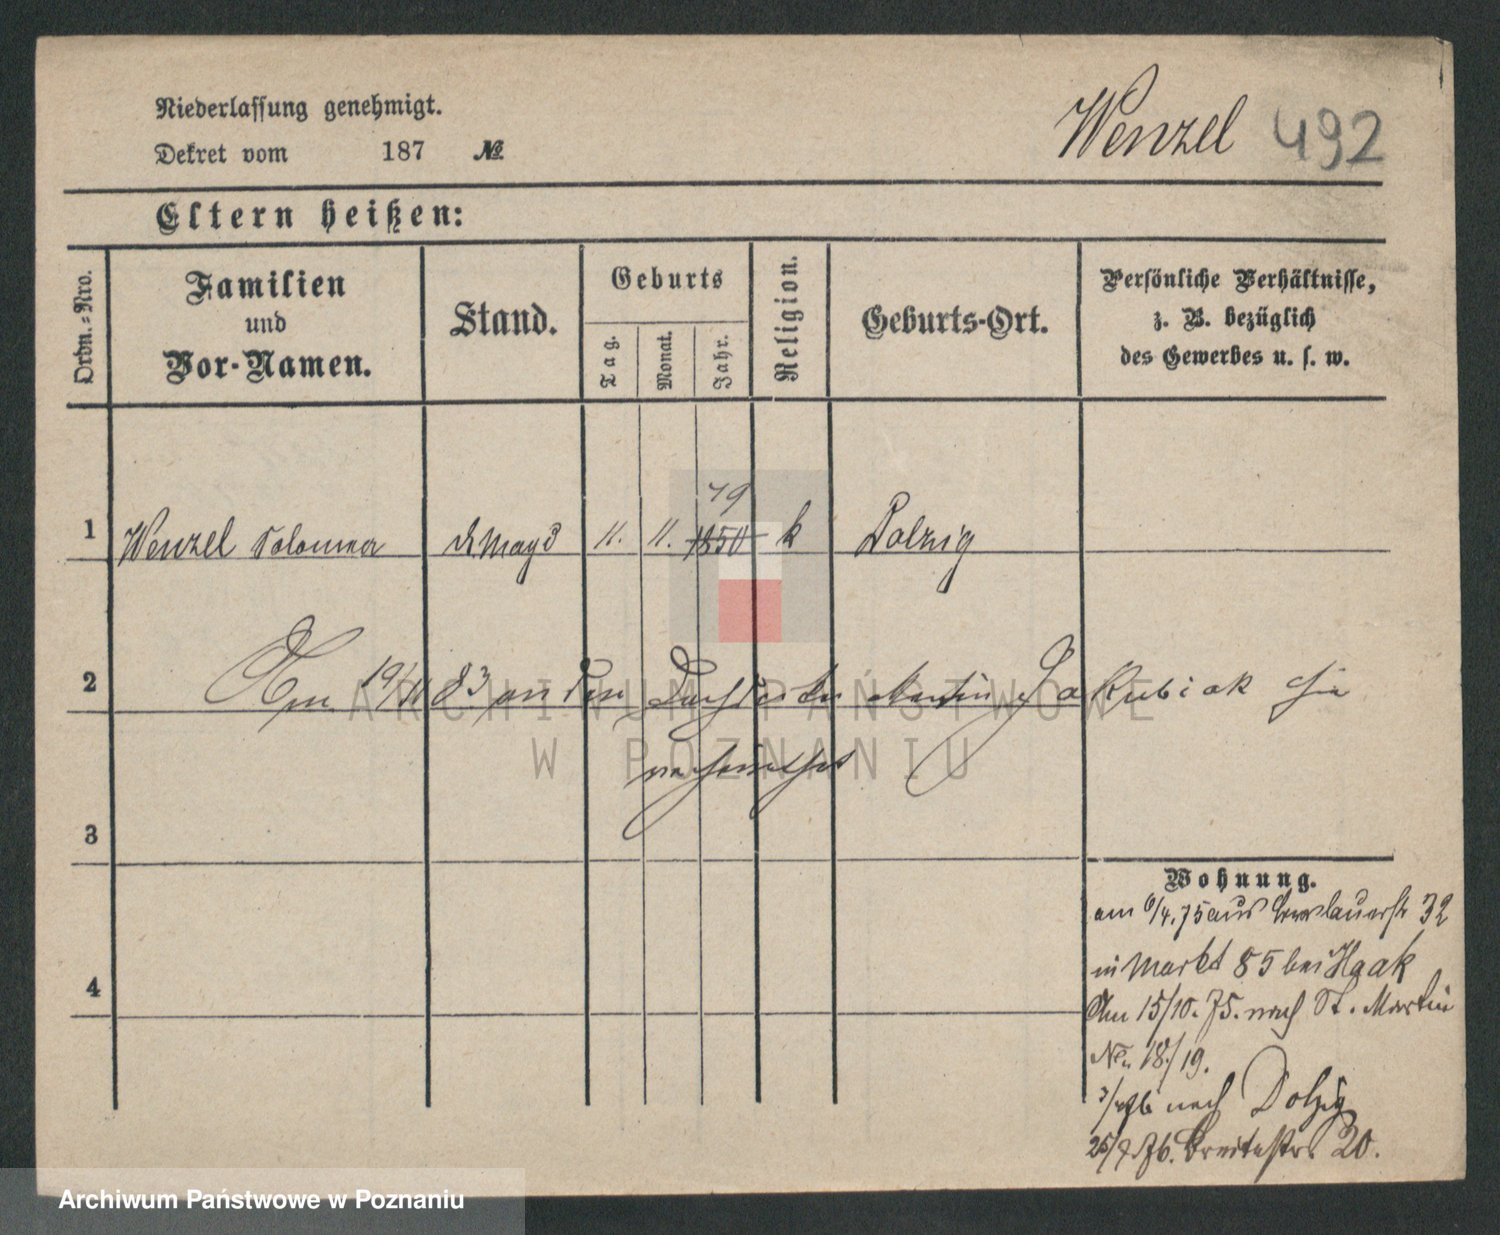 Niederlassung genehmigt.
Dekret vom 187 №
Wenzel 492
Eltern heißen:
Ordn.-Nro.
Familien
und
Vor-Namen.
Stand.
Geburts
Tag.
Monat.
Jahr.
Religion.
Geburts-Ort.
Persönliche Verhältnisse,
z. B. bezüglich
des Gewerbes u. s. w.
49
1 Wenzel Salomea dMagd 11. 11. 1850 k Dolzig
2 Am 19/11 83 an den Martin Jakubiak sie
verheirathet
3
Wohnung.
am 6/4.75 aus Breslauerstr 32
in Markt 85 bei Haak
4
Am 15/10.75. nach St. Martin
No. 18/19.
nach Dolzig
25/9.76. Breitestr. 20.
ARCHIWUM PAŃSTWOWE
W POZNANIU
Archiwum Państwowe w Poznaniu